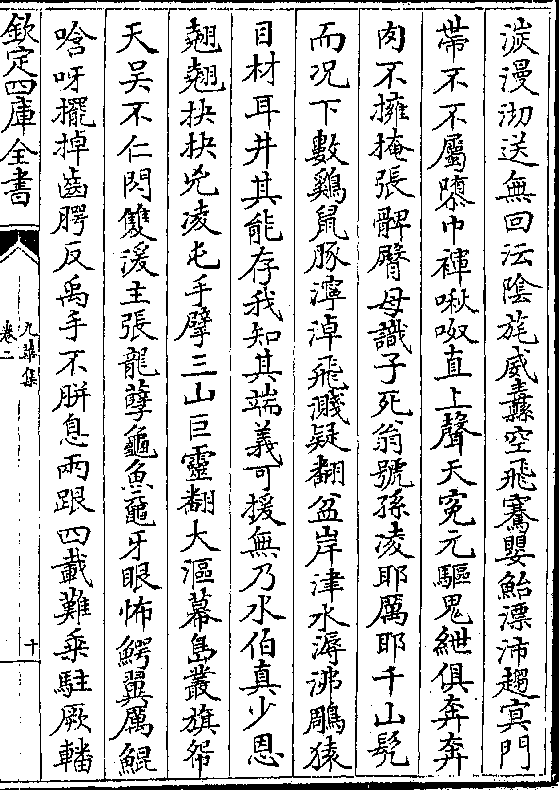 漭漫沏送無回沄陰旄威纛空飛騫嬰鮐漂沛趨㝠門
帶不不屬隳巾褌啾呶直上聲天寃元驅鬼紲俱奔奔
肉不擁掩張髀臀母識子死翁號孫凌耶厲耶千山髠
而况下數鷄鼠豚濘淖飛濺疑翻盆岸津水潯沸鵰猿
目材耳井其能存我知其端義可援無乃水伯真少恩
翹翹抉抉兇凌屯手擘三山巨靈翻大漚幕島叢旗㡓
天吴不仁閃雙湲主張龍孽龜魚黿牙眼怖鰐翼厲鯤
唅呀擺掉齒腭反禹手不胼息兩跟四載難乘駐厥轓
欽定四庫全書
九華集
卷二
十